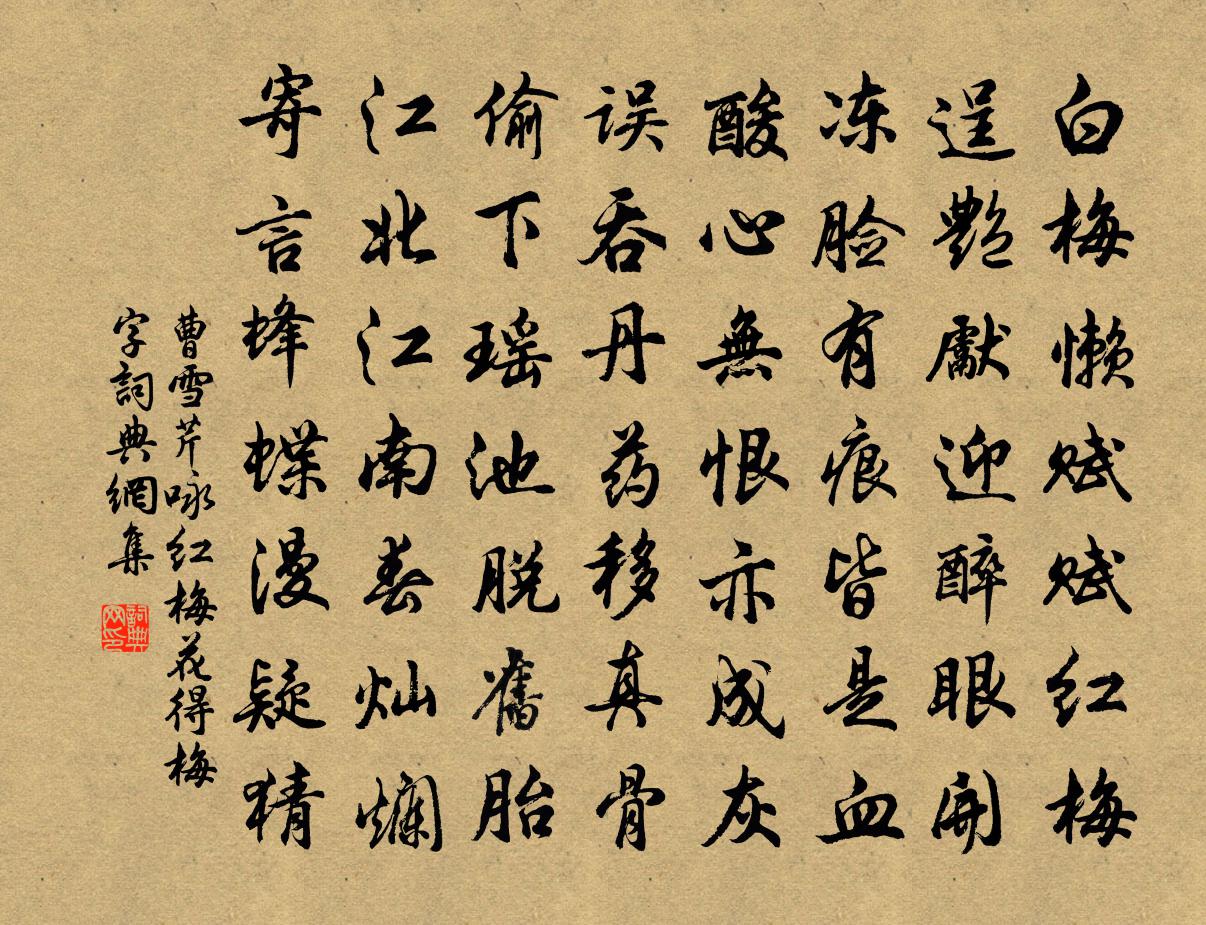 白梅懒赋赋红梅
逞艷獻迎醉眼開
冻脸有痕皆是血
酸心無恨亦成灰
误吞丹药移真骨
偷下瑶池脱舊胎
江北江南春灿爛
寄言蜂蝶漫疑猜
曹雪芹咏红梅花得梅
字詞典網集
詞典网印